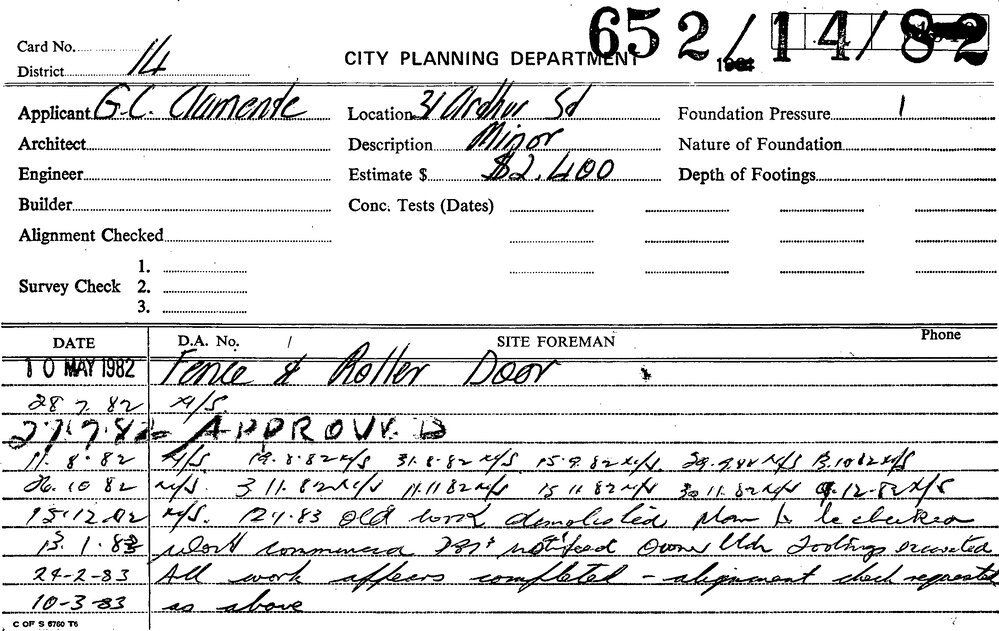 652/14/82
Card No.
CITY PLANNING DEPARTMENT
District 14
Applicant G.C. Clamente Location 31 Arthur Sd Foundation Pressure
Architect Description Minor Nature of Foundation
Engineer Estimate $ $2,400 Depth of Footings
Builder Conc. Tests (Dates)
Alignment Checked
1.
Survey Check 2.
3.
DATE D.A. No. SITE FOREMAN Phone
10 MAY 1982 Fence & Roller Door
28 7 82 N/S.
27.7.82 APPROVED
11. 8. 82 N/S 19.8.82 N/S 31.8.82 N/S 15.9.82 N/S. 29.9.82 N/S 13.10.82 N/S
26.10 82 N/S. 3 11.82 N/S 11.11 82 N/S 15 11 82 N/S 30 11.82 N/S 9.12.82 N/S
12.1.83 Old work demolished plan to be checked
13.1.83 Work commenced notified Owner footings excavated
24-2-83 All work appears completed - alignment check requested
10-3-83 as above
C OF S 6760 T6